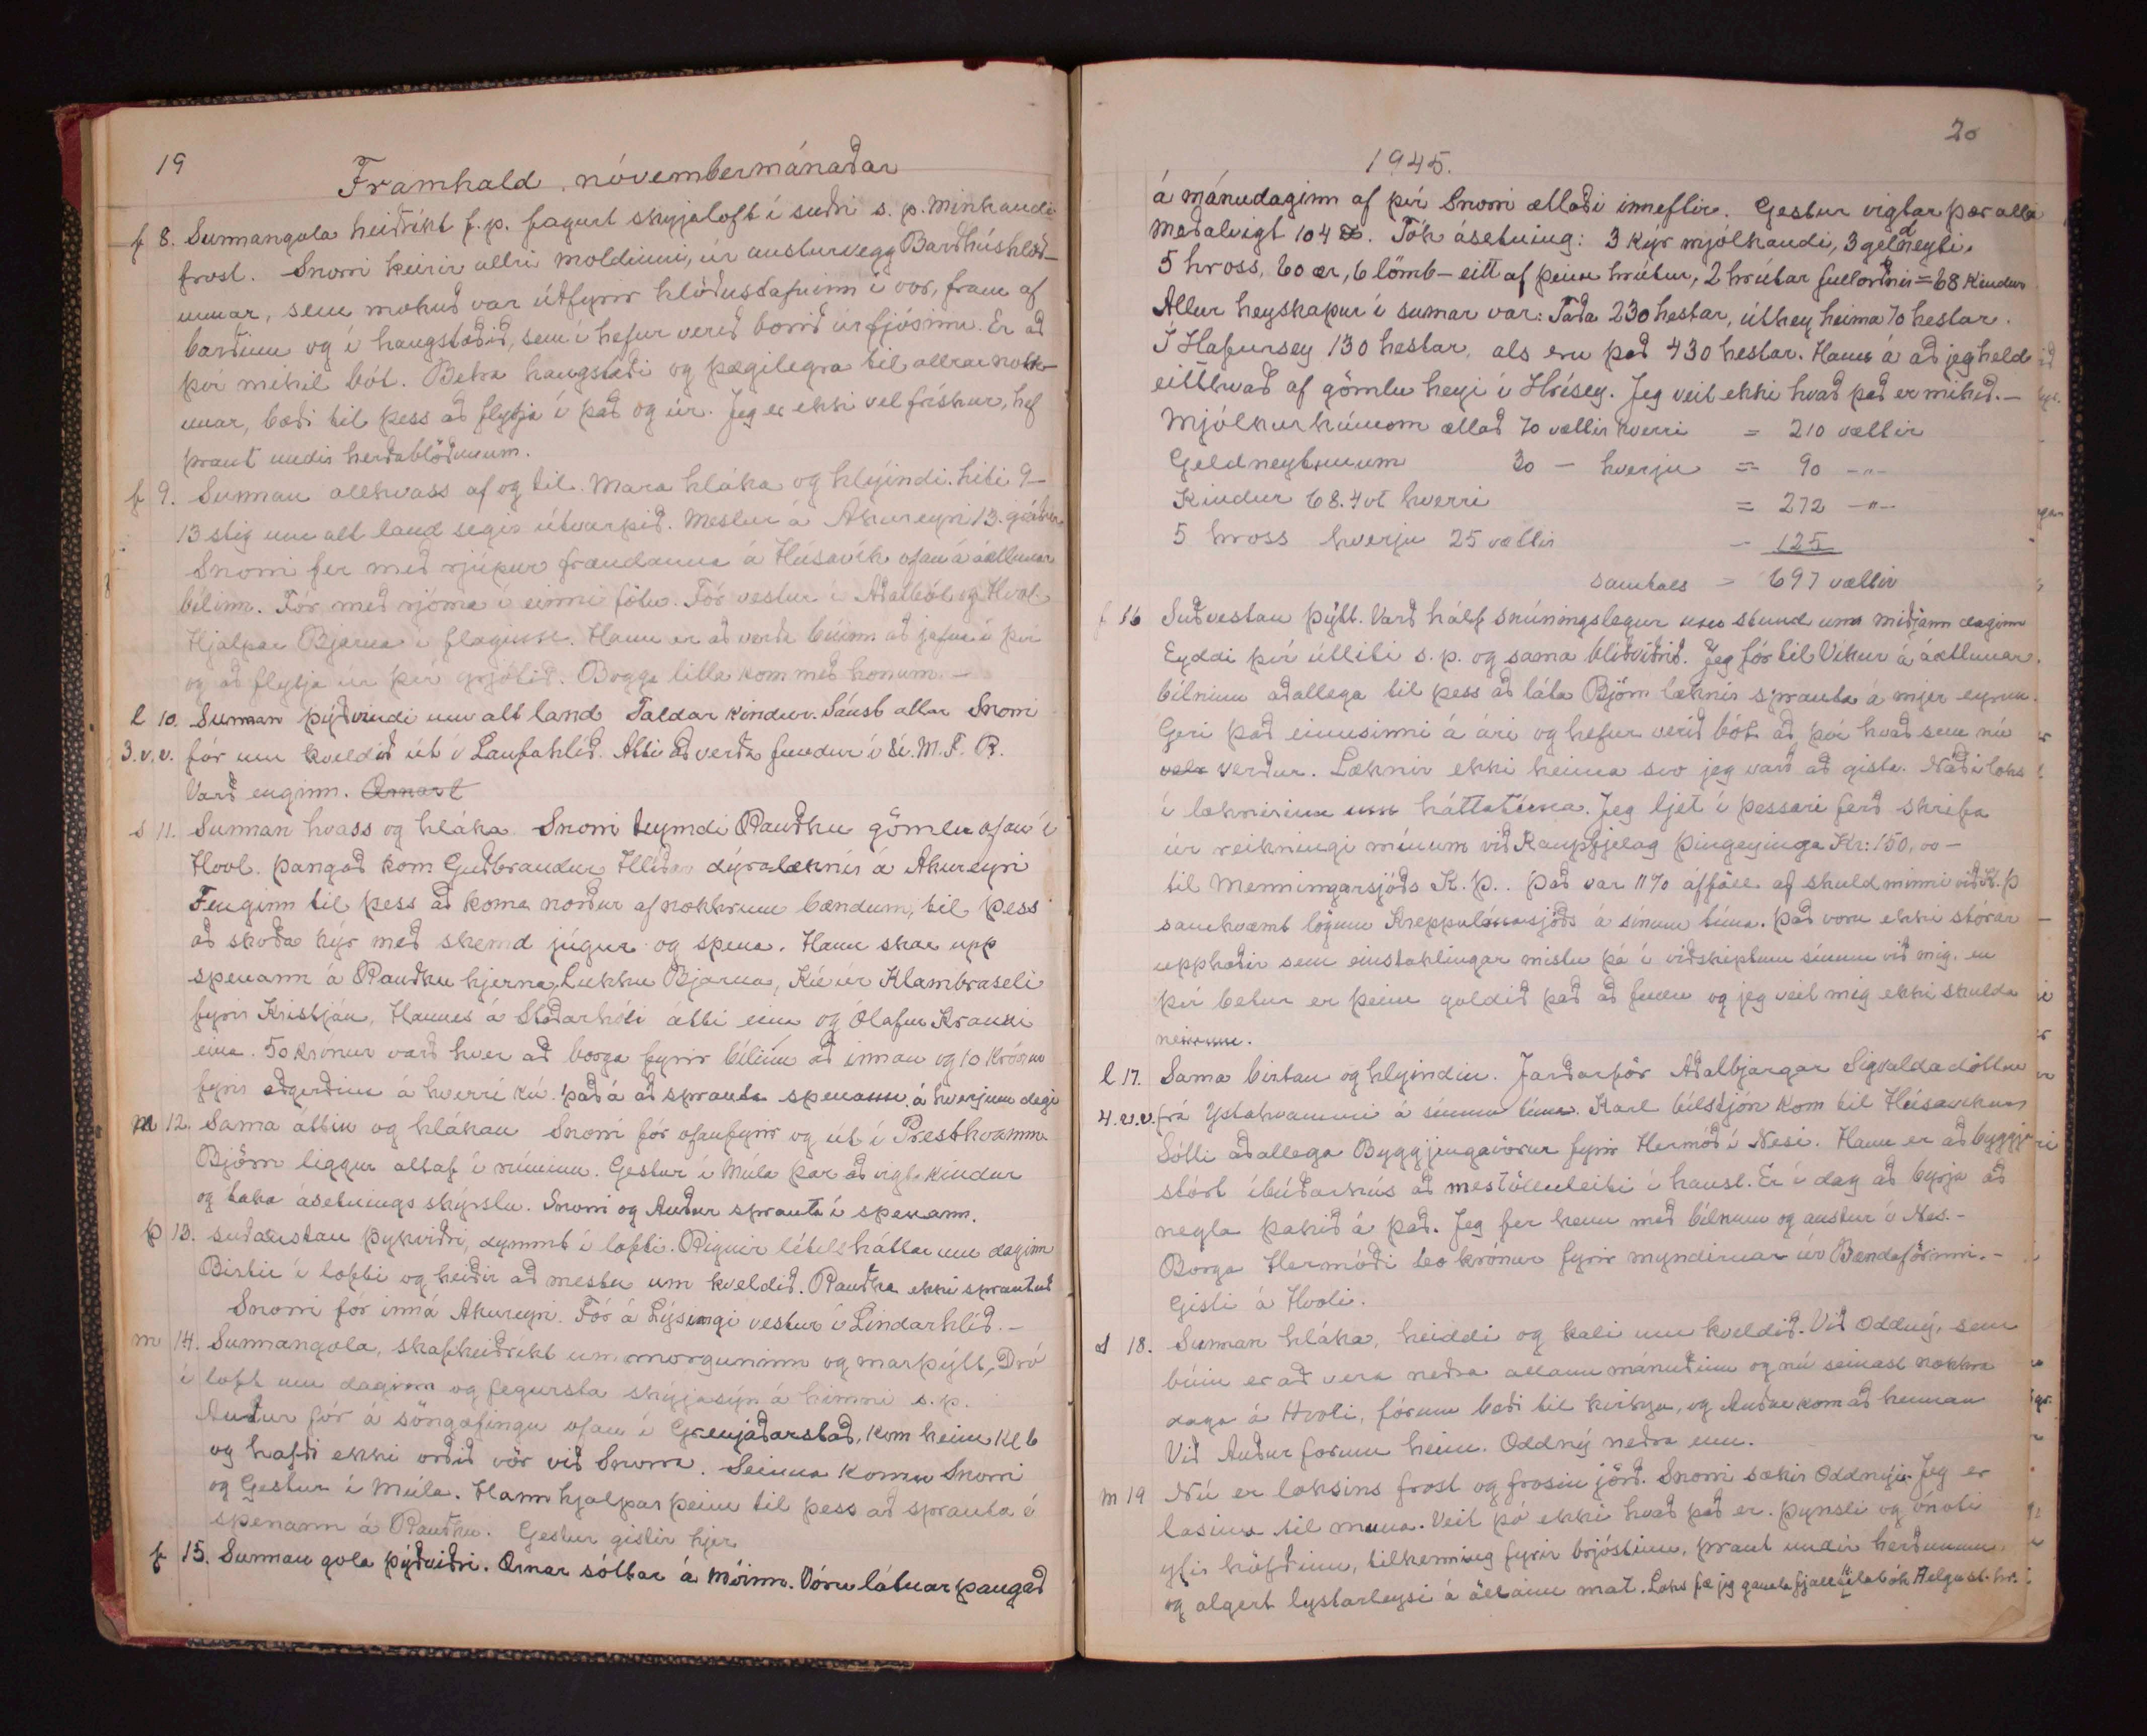 19
Framhald nóvembermánaðar
f 8. Sunnangola heiðríkt f.p. fagurt skýjaloft í suðri s.p. Minkandi
frost. Snorri keirir allri moldinni, úr austurvegg Barðhúshlöð-
unnar, sem mokuð var útfyrir hlöðustafninn í vor, fram af
barðinu og í haugstæðið, sem í hefur verið borið úr fjósinu. Er að
því mikil bót. Betra haugstæði og þægilegra til allrar notk-
unar, bæði til þess að flytja í það og úr. Jeg er ekki vel frískur, hef
þraut undir herðablöðunum.
f 9. Sunnan allhvass af og til. Mara hláka og hlýindi. hiti 9-
13 stig um alt land segir útvarpið. Mestur á Akureyri 13.
Snorri fer með rjúpur frændanna á Húsavík ofan á áætlunar
bílinn. Fór með rjóma í einni fötu. Fór vestur í Aðalból og Hvol.
Hjálpar Bjarna í flaginu. Hann er að verða búinn að jafna í því
og að flytja úr því grjótið. Bogga litla kom með honum. -
l 10. Sunnan þýðvindi um alt land Taldar kindur. Sáust allar Snorri
3. v. v. fór um kveldið út í Laufahlíð. Átti að verða fundur í St. M. F. R.
Varð enginn. Ornart
s 11. Sunnan hvass og hláka. Snorri teymdi Rauðku gömlu ofan í
Hvol. Þangað kom Guðbrandur Hlíðar dýralæknir á Akureyri
Fenginn til þess að koma norður af nokkrum bændum, til þess
að skoða kýr með skemd júgur og spena. Hann skar upp
spenann á Rauðku hjerna, Lukku Bjarna, Kú úr Klambraseli
fyrir Kristján. Hannes á Staðarhóli átti eina og Ólafur Kraunu
eina. 50 krónur varð hver að borga fyrir bílinn að innan og 10 krónur
fyrir aðgerðina á hverri kú. Það á að sprauta spenann á hverjum degi
m 12. Sama áttin og hlákan Snorri fór ofanfyrir og út í Presthvamm
Björn liggur altaf í rúminu. Gestur í Múla þar að vigta kindur
og taka ásetnings skýrslu. Snorri og Auður sprauta í spenann.
þ 13. suðaustan þykviðri, dymmt í lofti. Rignir lítilsháttar um daginn
Birtir í lofti og heiðir að mestu um kveldið. Rauðka ekki sprautuð
Snorri fór inná Akureyri. Fór á Lýsingi vestur í Lindarhlíð. -
m 14. Sunnangola, skafheiðríkt um morguninn og marþýtt, Dró
í loft um daginn og fegursta skýjasýn á himni s.p.
Auður fór á söngæfingu ofan í Grenjaðarstað, kom heim Kl 6
og hafði ekki orðið vör við Snorra. Seinna komu Snorri
og Gestur í Múla. Hann hjálpar þeim til þess að sprauta í
spenann á Rauðku. Gestur gistir hjer
f 15. Sunnan gola þýðviðri. Ærnar sóttar á Móinn. Vóru látnar þangað
20
1945.
á mánudaginn af því Snorri ætlaði inneftir. Gestur vigtar þær allar
Meðalvigt 104 ℔. Tók ásetning: 3 kýr mjólkandi, 3 geldneyti,
5 hross, 60 ær, 6 lömb - eitt af þeim hrútur, 2 hrútar fullorðnir = 68 kindur
Allur heyskapur í sumar var: Taða 230 hestar, úthey heima 70 hestar.
Í Hafursey 130 hestar, als eru það 430 hestar. Hann á að jeg held
eitthvað af gömlu heyi í Hrísey. Jeg veit ekki hvað það er mikið. -
Mjólkurkúnum ætlað 70 vættir hverri = 210 vættir
Geldneytunum 30 - hverju = 90 -"-
Kindur 68. 4 vt hverri = 272 -"-
5 hross hverju 25 vættir - 125
samtals = 697 vættir
f 16 Suðvestan þýtt. Varð hálf snúningslegur um stund um miðjann daginn
Eyddi því útliti s.p. og sama blíðviðrið. Jeg fór til Víkur á áætlunar-
bílnum aðallega til þess að láta Björn læknir sprauta á mjer eyrun.
Geri það einusinni á ári og hefur verið bót að því hvað sem nú
verður. Læknir ekki heima svo jeg varð að gista. Náði loks
í læknirinn um háttatíma. Jeg ljet í þessari ferð skrifa
úr reikningi mínum við Kaupfjelag Þingeyinga Kr: 150,00 -
til Menningarsjóðs K. Þ.. Það var 11% afföll af skuld minni við K. Þ
samkvæmt lögum Kreppulánasjóðs á sínum tíma. Það voru ekki stórar
upphæðir sem einstaklingar mistu þá í viðskiptum sínum við mig, en
því betur er þeim goldið það að fullu og jeg veit mig ekki skulda
neinum.
l 17. Sama birtan og hlýindin. Jarðarför Aðalbjargar Sigvaldadóttur
4. v. v. frá Ystahvammi á sínum tíma. Karl bílstjóri kom til Húsavíkur
Sótti aðallega Byggjingavörur fyrir Hermóð í Nesi. Hann er að byggja
stórt íbúðarhús að mestölluleiti í haust. Er í dag að byrja að
negla þakið á það. Jeg fer heim með bílnum og austur í Nes. -
Borga Hermóði 60 krónur fyrir myndirnar úr Bændaförinni. -
Gisti á Hvoli.
s 18. Sunnan hláka, heiddi og kali um kveldið. Við Oddný, sem
búin er að vera neðra allann mánuðinn og nú seinast nokkra
daga á Hvoli, fórum bæði til kirkju, og Auður kom að heiman
Við Auður forum heim. Oddný neðra enn.
m 19 Nú er loksins frost og frosin jörð. Snorri sækir Oddnýju. Jeg er
lasinn til muna. Veit þó ekki hvað það er. Þyngsli og ónoti
yfir höfðinu, tilkenning fyrir brjóstinu, þraut undir herðunum,
og algert lystarleysi á öllum mat. Loks fæ jeg gamla fjallskilabók Helgast. hr.